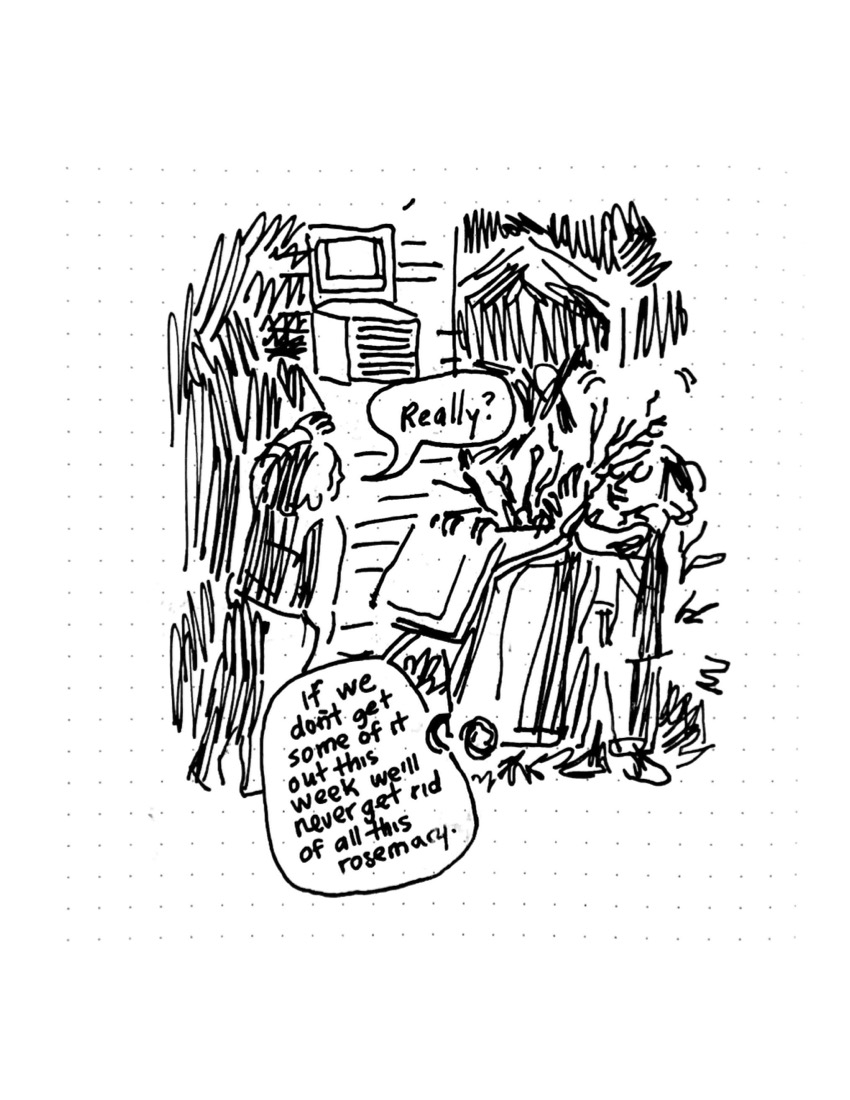 Really?
If we
don't get
some of it
out this
week we'll
never get rid
of all this
rosemary.